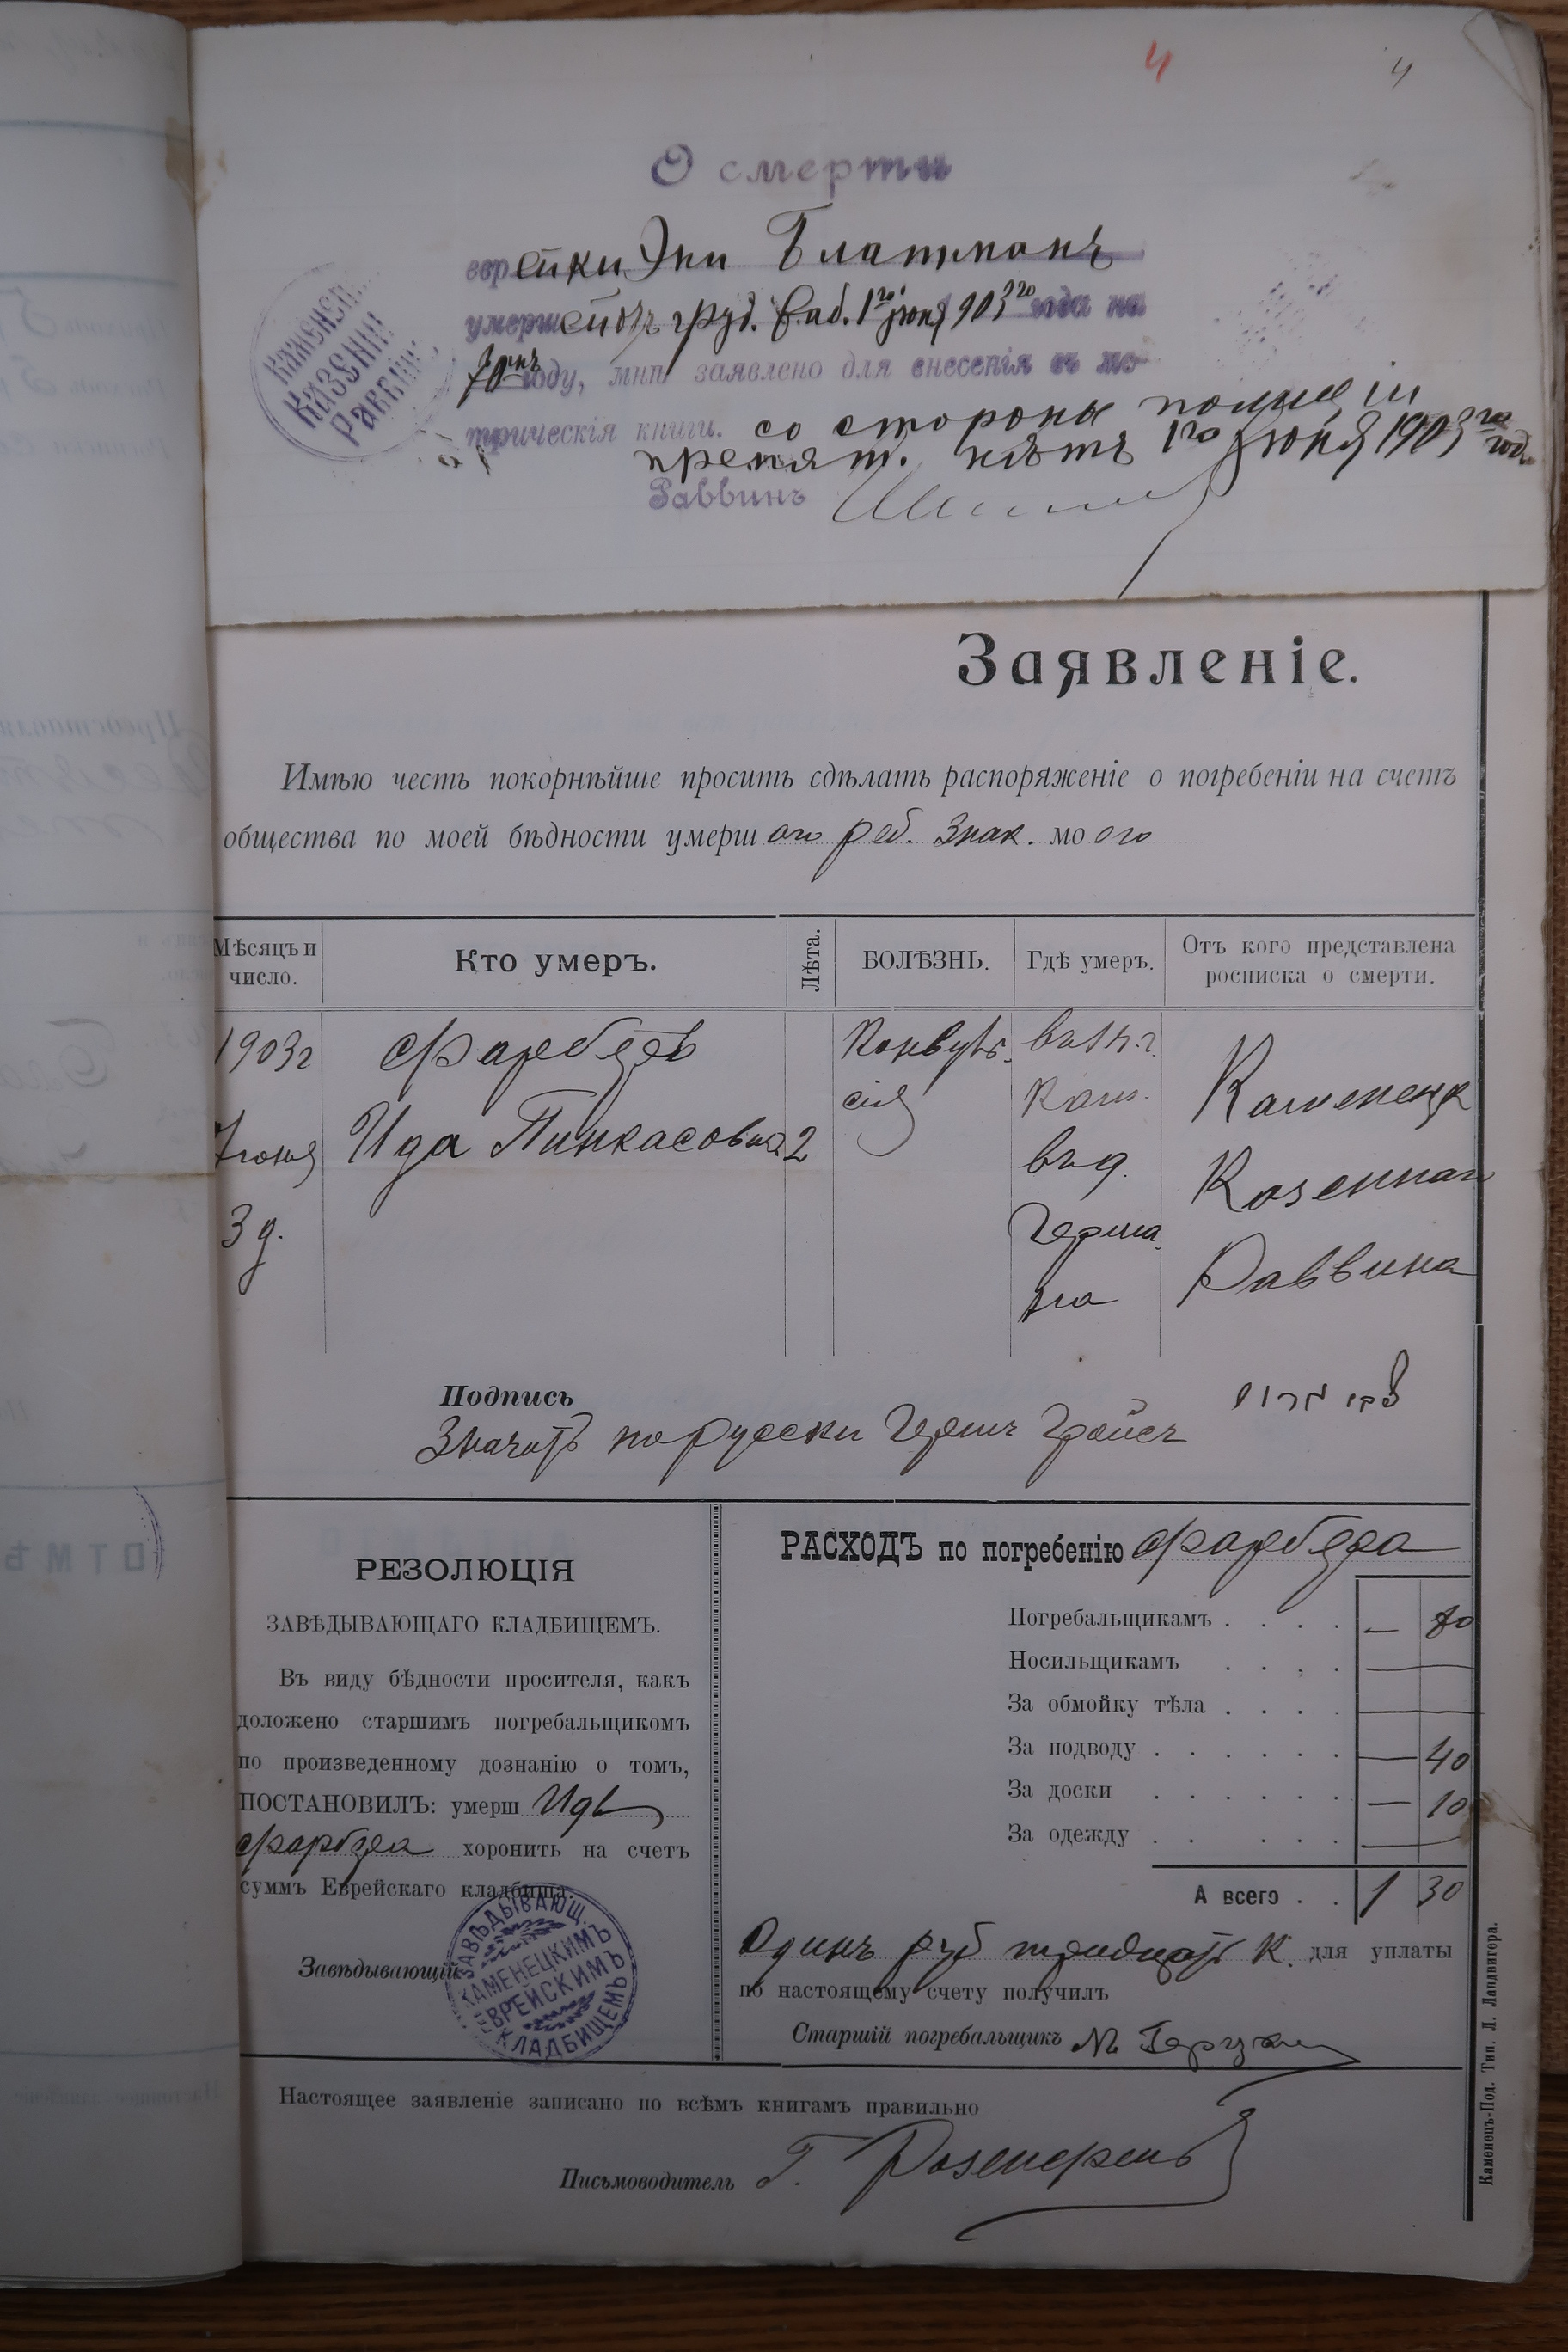 4 4
О смерти
еврейки Эни Блатманъ
умершей отъ груд. 1го июня 903го года на
70мъ году, мнѣ заявлено для внесенія въ ме-
трическія книги. со стороны полиціи
препят. нѣтъ 1го июня 1903го года
Раввинъ
Каменец.
Казенн
Раввин
Заявленіе.
Имѣю честь покорнѣйше просить сдѣлать распоряженіе о погребеніи на счетъ
общества по моей бѣдности умершого реб. знак. моого
Мѣсяцъ и число.
Кто умеръ.
Лѣта.
БОЛѢЗНЬ.
Гдѣ умеръ.
Отъ кого представлена росписка о смерти.
1903г
июня
3 д.
Ида Пинкасовна
2
Конвуль-
сія
въ г.
Кам.
въ д.
Герша
Каменецк
Казеннаг
Раввина
Подпись
Значитъ по русски Гершъ Гройсъ
РЕЗОЛЮЦІЯ
ЗАВѢДЫВАЮЩАГО КЛАДБИЩЕМЪ.
Въ виду бѣдности просителя, какъ
доложено старшимъ погребальщикомъ
по произведенному дознанію о томъ,
ПОСТАНОВИЛЪ: умерш Ида
хоронить на счетъ
суммъ Еврейскаго кладбища.
Завѣдывающій
ЗАВѢДЫВАЮЩ.
КАМЕНЕЦКИМЪ
ЕВРЕЙСКИМЪ
КЛАДБИЩЕМЪ
РАСХОДЪ по погребенію
Погребальщикамъ . . . . — 80
Носильщикамъ . . . . —
За обмойку тѣла . . . . —
За подводу . . . . . . — 40
За доски . . . . . . — 10
За одежду . . . . . —
А всего . . 1 30
Одинъ руб тридцать к. для уплаты
по настоящему счету получилъ
Старшій погребальщикъ М.
Настоящее заявленіе записано по всѣмъ книгамъ правильно
Письмоводитель Г.
Каменецъ-Под. Тип. Л. Ландвигера.